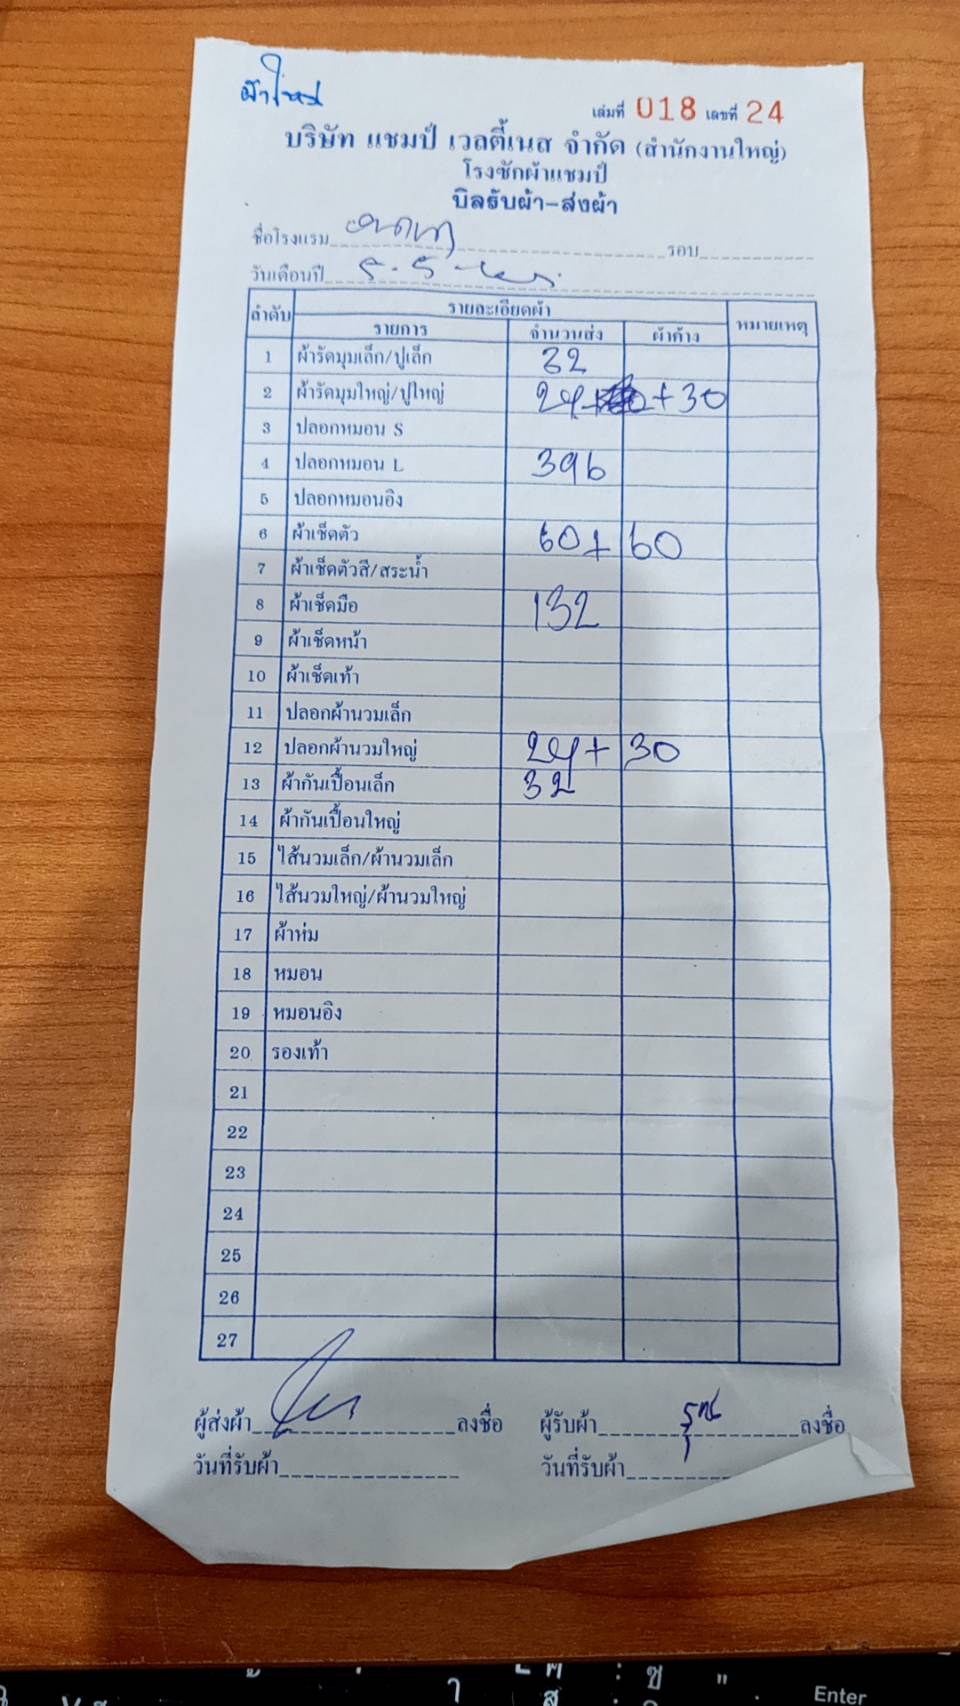 ผ้าใหม่
เล่มที่ 018 เลขที่ 24
บริษัท แชมป์ เวลตี้เนส จำกัด (สำนักงานใหญ่)
โรงซักผ้าแชมป์
บิลรับผ้า-ส่งผ้า
ชื่อโรงแรม รอบ
วันเดือนปี
ลำดับ รายละเอียดผ้า หมายเหตุ
รายการ จำนวนส่ง ผ้าค้าง
1 ผ้ารัดมุมเล็ก/ปูเล็ก 32
2 ผ้ารัดมุมใหญ่/ปูใหญ่ 24 + 30
3 ปลอกหมอน S
4 ปลอกหมอน L 396
5 ปลอกหมอนอิง
6 ผ้าเช็ดตัว 60 + 60
7 ผ้าเช็ดตัวสี/สระน้ำ
8 ผ้าเช็ดมือ 132
9 ผ้าเช็ดหน้า
10 ผ้าเช็ดเท้า
11 ปลอกผ้านวมเล็ก
12 ปลอกผ้านวมใหญ่ 24 + 30
13 ผ้ากันเปื้อนเล็ก 32
14 ผ้ากันเปื้อนใหญ่
15 ไส้นวมเล็ก/ผ้านวมเล็ก
16 ไส้นวมใหญ่/ผ้านวมใหญ่
17 ผ้าห่ม
18 หมอน
19 หมอนอิง
20 รองเท้า
21
22
23
24
25
26
27
ผู้ส่งผ้า ลงชื่อ ผู้รับผ้า ลงชื่อ
วันที่รับผ้า วันที่รับผ้า
Enter